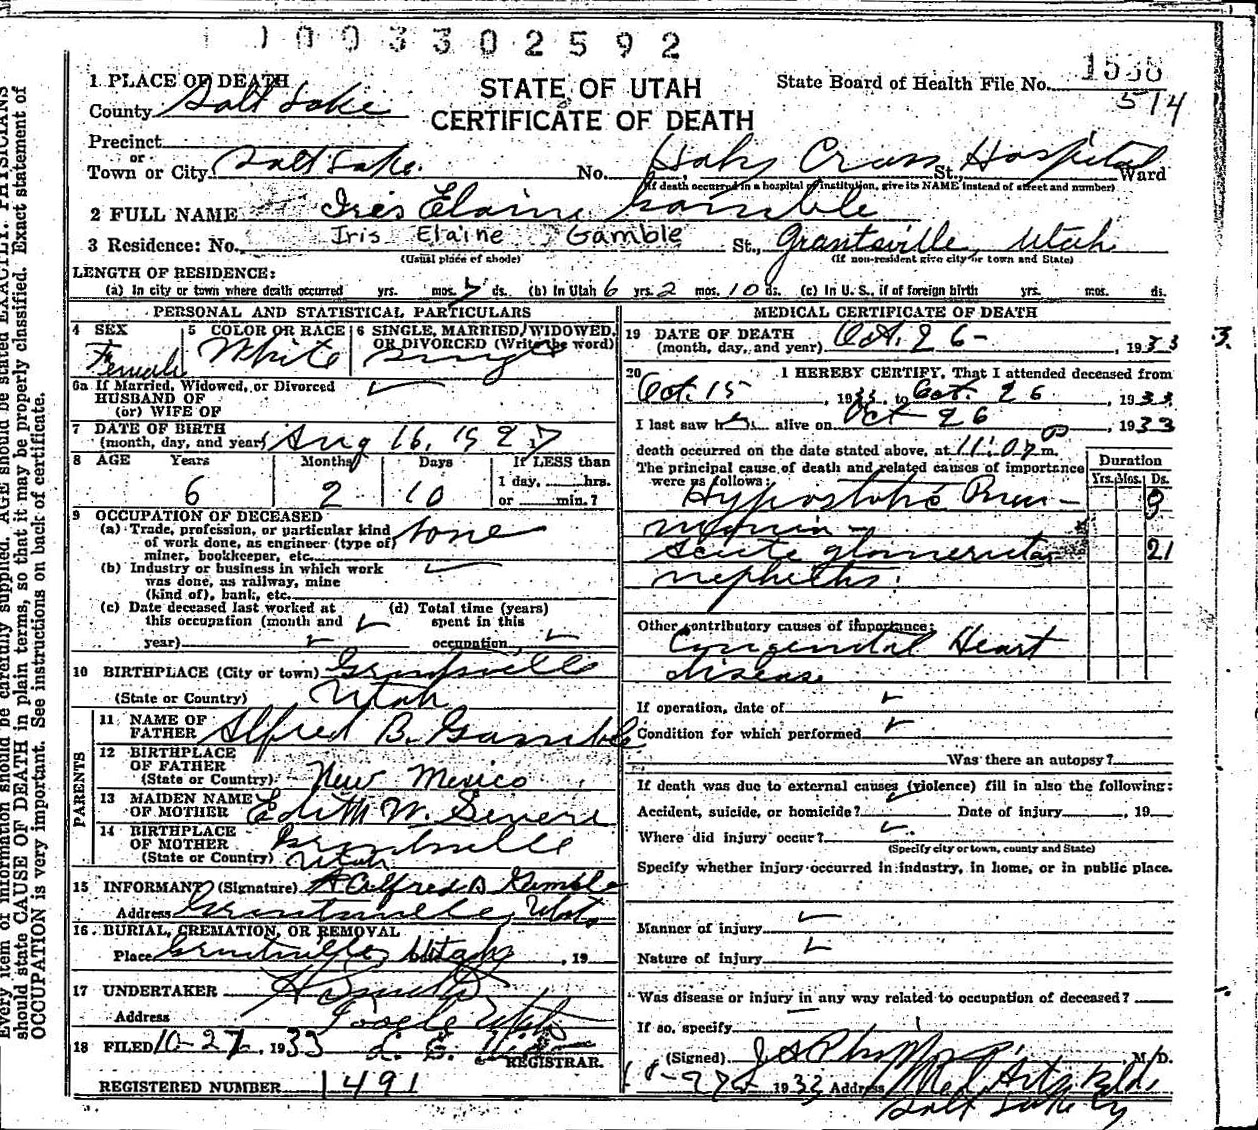 1003302592
1 PLACE OF DEATH
STATE OF UTAH
CERTIFICATE OF DEATH
State Board of Health File No. 1538
514
County Salt Lake
Precinct
or
Town or City Salt Lake. No. Holy Cross Hospital St., Ward
(If death occurred in a hospital or institution, give its NAME instead of street and number)
2 FULL NAME Iris Elaine Gamble
Iris Elaine Gamble
3 Residence: No. St., Grantsville, Utah
(Usual place of abode) (If non-resident give city or town and State)
LENGTH OF RESIDENCE:
(a) In city or town where death occurred yrs. mos. 7 ds. (b) In Utah 6 yrs. 2 mos. 10 ds. (c) In U. S., if of foreign birth yrs. mos. ds.
PERSONAL AND STATISTICAL PARTICULARS
4 SEX Female
5 COLOR OR RACE White
6 SINGLE, MARRIED, WIDOWED, OR DIVORCED (Write the word) Single
6a If Married, Widowed, or Divorced
HUSBAND OF
(or) WIFE OF
7 DATE OF BIRTH
(month, day, and year) Aug 16, 1927
8 AGE Years Months Days If LESS than
6 2 10 1 day, hrs.
or min.?
9 OCCUPATION OF DECEASED
(a) Trade, profession, or particular kind None
of work done, as engineer (type of)
miner, bookkeeper, etc.
(b) Industry or business in which work
was done, as railway, mine
(kind of), bank, etc.
(c) Date deceased last worked at (d) Total time (years)
this occupation (month and spent in this
year) occupation
10 BIRTHPLACE (City or town) Grantsville
(State or Country) Utah
PARENTS
11 NAME OF
FATHER Alfred B. Gamble
12 BIRTHPLACE
OF FATHER
(State or Country) New Mexico
13 MAIDEN NAME
OF MOTHER Edith W. Severe
14 BIRTHPLACE
OF MOTHER Grantsville
(State or Country) Utah
15 INFORMANT (Signature) Alfred B Gamble
Address Grantsville, Utah
16. BURIAL, CREMATION, OR REMOVAL
Place Grantsville, Utah , 19
17 UNDERTAKER
Address Tooele Utah
18 FILED 10-27, 1933
REGISTRAR.
REGISTERED NUMBER 1491
MEDICAL CERTIFICATE OF DEATH
19 DATE OF DEATH
(month, day, and year) Oct. 26 - , 1933
20 I HEREBY CERTIFY, That I attended deceased from
Oct. 15 , 1933, to Oct. 26 , 1933
I last saw her alive on Oct 26 , 1933
death occurred on the date stated above, at 11:07 P m.
The principal cause of death and related causes of importance
were as follows:
Duration
Yrs. Mos. Ds.
Hypostatic Pneu- 3
monia -
Acute glomerular 21
nephritis.
Other contributory causes of importance:
Congenital Heart
disease
If operation, date of
Condition for which performed
Was there an autopsy?
If death was due to external causes (violence) fill in also the following:
Accident, suicide, or homicide? Date of injury , 19
Where did injury occur?
(Specify city or town, county and State)
Specify whether injury occurred in industry, in home, or in public place.
Manner of injury
Nature of injury
Was disease or injury in any way related to occupation of deceased?
If so, specify
(Signed) , M. D.
1933 Address Med Arts Bldg
Salt Lake Cy
Every item of information should be carefully supplied. AGE should be stated EXACTLY. PHYSICIANS
should state CAUSE OF DEATH in plain terms, so that it may be properly classified. Exact statement of
OCCUPATION is very important. See instructions on back of certificate.